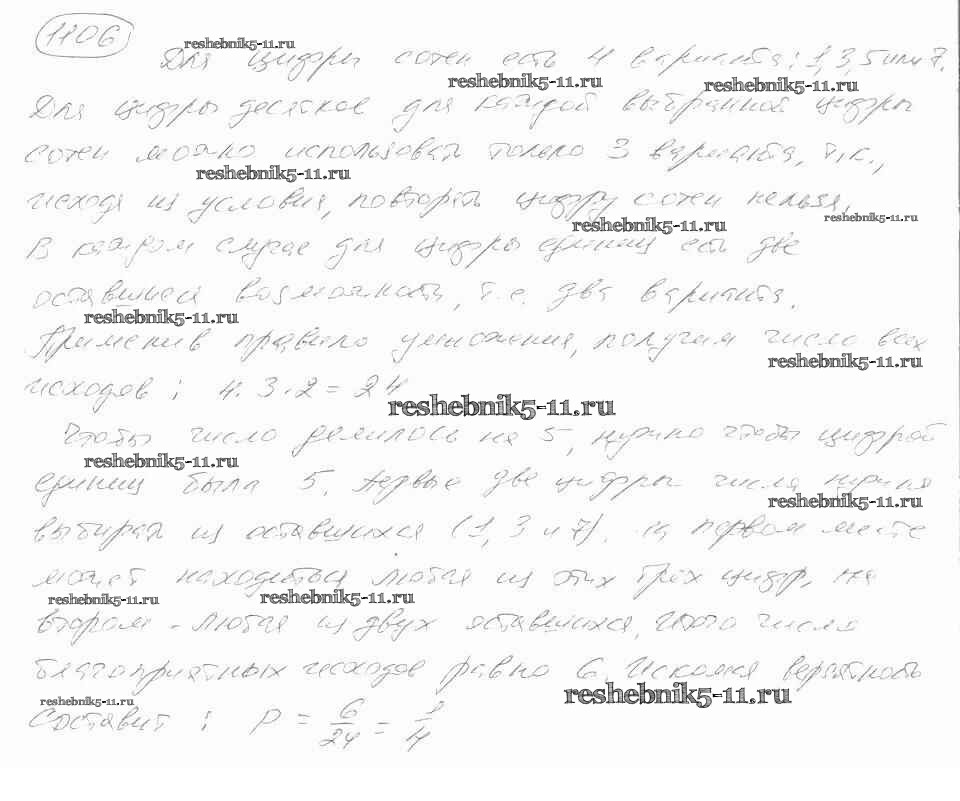 1106
reshebnik5-11.ru
Для цифры сотен есть 4 варианта: 1, 3, 5 или 7.
reshebnik5-11.ru reshebnik5-11.ru
Для цифры десятков для каждой выбранной цифры
сотен можно использовать только 3 варианта, т.к.,
reshebnik5-11.ru
исходя из условия, повторять цифру сотен нельзя,
reshebnik5-11.ru reshebnik5-11.ru
В каждом случае для цифры единиц есть две
оставшиеся возможности, т.е. два варианта.
reshebnik5-11.ru
Применив правило умножения, получим число всех
reshebnik5-11.ru
исходов: 4·3·2=24
reshebnik5-11.ru
Чтобы число делилось на 5, нужно чтобы цифрой
reshebnik5-11.ru
единиц была 5. Первые две цифры числа нужно
reshebnik5-11.ru
выбирать из оставшихся (1, 3 и 7). На первом месте
может находиться любая из этих трёх цифр, на
reshebnik5-11.ru reshebnik5-11.ru
втором - любая из двух оставшихся, число
благоприятных исходов равно 6. Искомая вероятность
reshebnik5-11.ru reshebnik5-11.ru
составит: P = 6/24 = 1/4